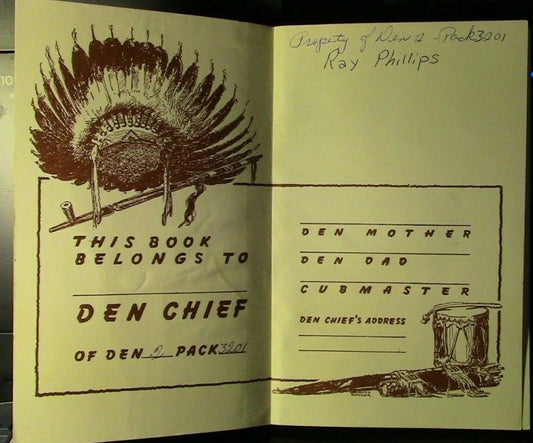 THIS BOOK
BELONGS TO
DEN CHIEF
OF DEN 2 PACK 3201
Property of Den 2 - Pack 3201
Ray Phillips
DEN MOTHER
DEN DAD
CUBMASTER
DEN CHIEF'S ADDRESS